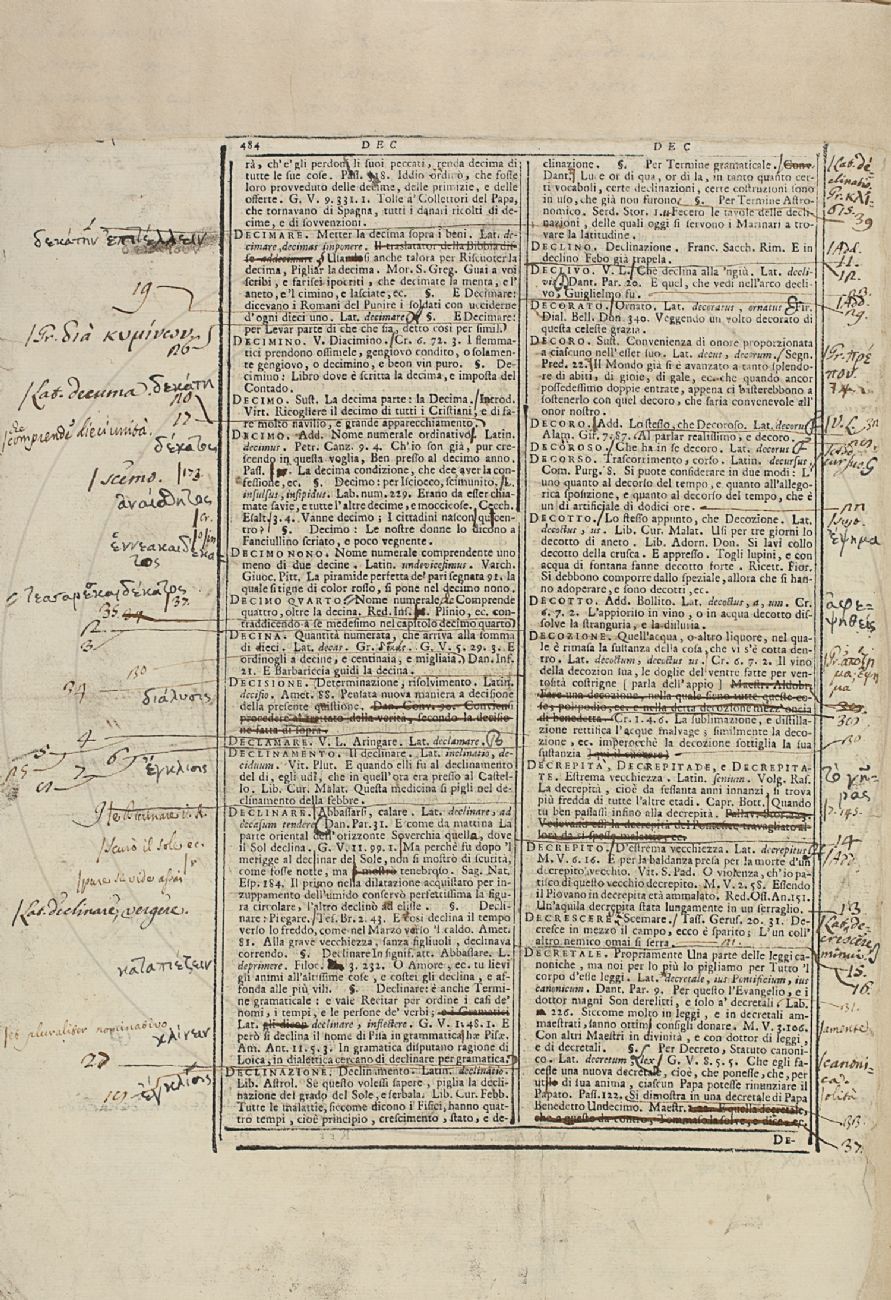 484
DEC
DEC
rà, ch'e'gli perdoni li suoi peccati, renda decima di
tutte le sue cose. Pass. 118. Iddio ordinò, che fosse
loro provveduto delle decime, delle primizie, e delle
offerte. G. V. 9. 331. 1. Tolse a' Collettori del Papa,
che tornavano di Spagna, tutti i danari ricolti di de-
cime, e di sovvenzioni.
DECIMARE. Metter la decima sopra i beni. Lat. de-
cimare, decimas imponere. Il traslatator della Bibbia dis-
se addecimare. Usasi anche talora per Riscuoter la
decima, Pigliar la decima. Mor. S. Greg. Guai a voi
scribi, e farisei ipocriti, che decimate la menta, e l'
aneto, e'l cimino, e lasciate, ec. §. E Decimare:
dicevano i Romani del Punire i soldati con ucciderne
d'ogni dieci uno. Lat. decimare. §. E Decimare:
per Levar parte di che che sia, detto così per simil.
DECIMINO. V. Diacimino. Cr. 6. 72. 3. I flemma-
tici prendono ossimele, gengiovo condito, o solamen-
te gengiovo, o decimino, e beon vin puro. §. De-
cimino: Libro dove è scritta la decima, e imposta del
Contado.
DECIMO. Sust. La decima parte: la Decima. Introd.
Virt. Ricogliere il decimo di tutti i Cristiani, e di fa-
re molto navilio, e grande apparecchiamento.
DECIMO. Add. Nome numerale ordinativo. Latin.
decimus. Petr. Canz. 9. 4. Ch'io son già, pur cre-
scendo in questa voglia, Ben presso al decimo anno.
Pass. La decima condizione, che dee aver la con-
fessione, ec. §. Decimo: per Isciocco, scimunito. L.
insulsus, insipidus. Lab. num. 229. Erano da esser chia-
mate savie, e tutte l'altre decime, e moccicose. Cecch.
Esalt. 3. 4. Vanne decimo; I cittadini nascon qui cen-
tro? §. Decimo: Le nostre donne lo dicono a
Fanciullino scriato, e poco vegnente.
DECIMONONO. Nome numerale comprendente uno
meno di due decine. Latin. undevicesimus. Varch.
Giuoc. Pitt. La piramide perfetta de' pari segnata 91. la
quale si tigne di color roso, si pone nel decimo nono.
DECIMO QUARTO. Nome numerale. Comprende
quattro, oltre la decina. Red. Ins. Plinio, ec. con-
traddicendo a se medesimo nel capitolo decimo quarto
DECINA. Quantità numerata, che arriva alla somma
di dieci. Lat. decas. Gr. G. V. 5. 29. 3. E
ordinogli a decine, e centinaia, e migliaia. Dan. Inf.
21. E Barbariccia guidi la decina.
DECISIONE. Determinazione, risolvimento. Latin.
decisio. Amet. 88. Pensata nuova maniera a decisione
della presente quistione. Dan. Conv. 90. Conviensi
procedere al trattato della verità, secondo la decisio-
ne fatta di sopra.
DECLAMARE. V. L. Aringare. Lat. declamare.
DECLINAMENTO. Il declinare. Lat. inclinatio, de-
ciduum. Vit. Plut. E quando elli fu al declinamento
del dì, egli udì, che in quell'ora era presso al Castel-
lo. Lib. Cur. Malat. Questa medicina si pigli nel de-
clinamento della febbre.
DECLINARE. Abbassarsi, calare. Lat. declinare, ad
occasum tendere. Dan. Par. 31. E come da mattina La
parte oriental dell'orizzonte Soverchia quella, dove
il Sol declina. G. V. 11. 99. 1. Ma perchè fu dopo 'l
merigge al declinar del Sole, non si mostrò di scurità,
come fosse notte, ma si mostrò tenebroso. Sag. Nat.
Esp. 184. Il primo nella dilatazione acquistato per in-
zuppamento dell'umido conservò perfettissima la figu-
ra circolare, l'altro declinò ad elisse. §. Decli-
nare: Piegare. Tes. Br. 2. 43. E così declina il tempo
verso lo freddo, come nel Marzo verso 'l caldo. Amet.
81. Alla grave vecchiezza, sanza figliuoli, declinava
correndo. §. Declinare In signif. att. Abbassare. L.
deprimere. Filoc. 3. 232. O Amore, ec. tu lievi
gli animi all'altissime cose, e costei gli declina, e af-
fonda alle più vili. §. Declinare: è anche Termi-
ne gramaticale: e vale Recitar per ordine i casi de'
nomi, i tempi, e le persone de' verbi; e i Gramatici
Lat. gli dicon declinare, inflectere. G. V. 1. 48. 1. E
però si declina il nome di Pisa in grammatica hæ Pisæ.
Am. Ant. 11. 5. 3. In gramatica disputano ragione di
Loica, in dialettica cercano di declinare per gramatica.
DECLINAZIONE. Declinamento. Latin. declinatio.
Lib. Astrol. Se questo volessi sapere, piglia la decli-
nazione del grado del Sole, e serbala. Lib. Cur. Febb.
Tutte le malattie, siccome dicono i Fisici, hanno quat-
tro tempi, cioè principio, crescimento, stato, e de-
clinazione. §. Per Termine gramaticale. Conv.
Dant. Lu. e or di qua, or di la, in tanto quanto cer-
ti vocaboli, certe declinazioni, certe costruzioni sono
in uso, che già non furono. §. Per Termine Astro-
nomico. Serd. Stor. 1. Fecero le tavole delle decli-
nazioni, delle quali oggi si servono i Marinari a tro-
vare la latitudine.
DECLINO. Declinazione. Franc. Sacch. Rim. E in
declino Febo già trapela.
DECLIVO. V. L. Che declina alla 'ngiù. Lat. decli-
vis. Dant. Par. 20. E quel, che vedi nell'arco decli-
vo, Guiglielmo fu.
DECORATO. Ornato. Lat. decoratus, ornatus. Fir.
Dial. Bell. Don. 340. Veggendo un volto decorato di
questa celeste grazia.
DECORO. Sust. Convenienza di onore proporzionata
a ciascuno nell'esser suo. Lat. decus, decorum. Segn.
Pred. 22. Il Mondo già si è avanzato a tanto splendo-
re di abiti, di gioie, di gale, ec. che quando ancor
possedessimo doppie entrate, appena ci basterebbono a
sostenerlo con quel decoro, che saria convenevole all'
onor nostro.
DECORO. Add. Lo stesso, che Decoroso. Lat. decorus.
Alam. Gir. 7. 87. Al parlar realissimo, e decoro.
DECOROSO. Che ha in se decoro. Lat. decorus.
DECORSO. Trascorrimento, corso. Latin. decursus.
Com. Purg. 8. Si puote considerare in due modi: L'
uno quanto al decorso del tempo, e quanto all'allego-
rica sposizione, e quanto al decorso del tempo, che è
un dì artificiale di dodici ore.
DECOTTO. Lo stesso appunto, che Decozione. Lat.
decoctus, us. Lib. Cur. Malat. Usi per tre giorni lo
decotto di aneto. Lib. Adorn. Don. Si lavi collo
decotto della crusca. E appresso. Togli lupini, e con
acqua di fontana fanne decotto forte. Ricett. Fior.
Si debbono comporre dallo speziale, allora che si han-
no adoperare, e sono decotti, ec.
DECOTTO. Add. Bollito. Lat. decoctus, a, um. Cr.
6. 7. 2. L'appiorito in vino, o in acqua decotto dis-
solve la stranguria, e la dissuria.
DECOZIONE. Quell'acqua, o altro liquore, nel qua-
le è rimasa la sustanza della cosa, che vi s'è cotta den-
tro. Lat. decoctum, decoctus us. Cr. 6. 7. 2. Il vino
della decozion sua, le doglie del ventre fatte per ven-
tosità costrigne (parla dell'appio) Maestr. Aldobr.
Fare una decozione, nella quale sieno tutte queste co-
se, polipodio, ec. e nella detta decozione mezz'oncia
di benedetta. Cr. 1. 4. 6. La sublimazione, e distilla-
zione rettifica l'acque malvage; similmente la deco-
zione, ec. imperocchè la decozione sottiglia la sua
sustanzia
DECREPITÀ, DECREPITADE, e DECREPITA-
TE. Estrema vecchiezza. Latin. senium. Volg. Ras.
La decrepità, cioè da sessanta anni innanzi, si trova
più fredda di tutte l'altre etadi. Capr. Bott. Quando
tu ben passassi infino alla decrepità.
DECREPITO. D'estrema vecchiezza. Lat. decrepitus.
M. V. 6. 16. E per la baldanza presa per la morte d'un
decrepito vecchio. Vit. S. Pad. O violenza, ch'io pa-
tisco di questo vecchio decrepito. M. V. 2. 58. Essendo
il Piovano in decrepita età ammalato. Red. Oss. An. 151.
Un'aquila decrepita stata lungamente in un serraglio.
DECRESCERE. Scemare. Tass. Gerus. 20. 31. De-
cresce in mezzo il campo, ecco è sparito; L'un coll'
altro nemico omai si serra.
DECRETALE. Propriamente Una parte delle leggi ca-
noniche, ma noi per lo più lo pigliamo per Tutto 'l
corpo d'esse leggi. Lat. decretale, ius Pontificium, ius
canonicum. Dant. Par. 9. Per questo l'Evangelio, e i
dottor magni Son derelitti, e solo a' decretali. Lab.
226. Siccome molto in leggi, e in decretali am-
maestrati, sanno ottimi consigli donare. M. V. 3. 106.
Con altri Maestri in divinità, e con dottor di leggi,
e di decretali. §. Per Decreto, Statuto canoni-
co. Lat. decretum, lex. G. V. 8. 5. 5. Che egli fa-
cesse una nuova decretale, cioè, che ponesse, che, per
utile di sua anima, ciascun Papa potesse rinunziare il
Papato. Pass. 122. Si dimostra in una decretale di Papa
Benedetto Undecimo. Maestr. 2. 22. E quella decretale,
che a questo fa contro, Tommaso la solve, e dice, ec.
DE-
δεκάτην
19
/Gr. διὰ κυμίνου
26
/Lat. decuma. δεκάτη
20
17
comprende dieci unità.
δέκατος
/scemo.
/173
ἀναίσθητος
ἐννεακαιδέκα
τος
τεσσαρεσκαιδέκατος
35. 37.
2.
3.
130
34
διάλυσις
4
6
ἔγκλισις
25
7
/scurò il sole ec.
/Lat. declinare, vergere.
καταπιέζειν
pluraliter nominativo
κλίνειν
27
ἔγκλισις
/Lat. de-
clinatio.
Gr. κλί-
σις.
39
/Add.
11.
12.
29.
/Gr. πρέ-
πον.
74.
ἕψημα
ἀφε-
ψηθείς
30
τὸ γῆ-
ρας
14
13
/Lat. de-
crescere
minui.
15.
16.
/canoni-
33.
37.